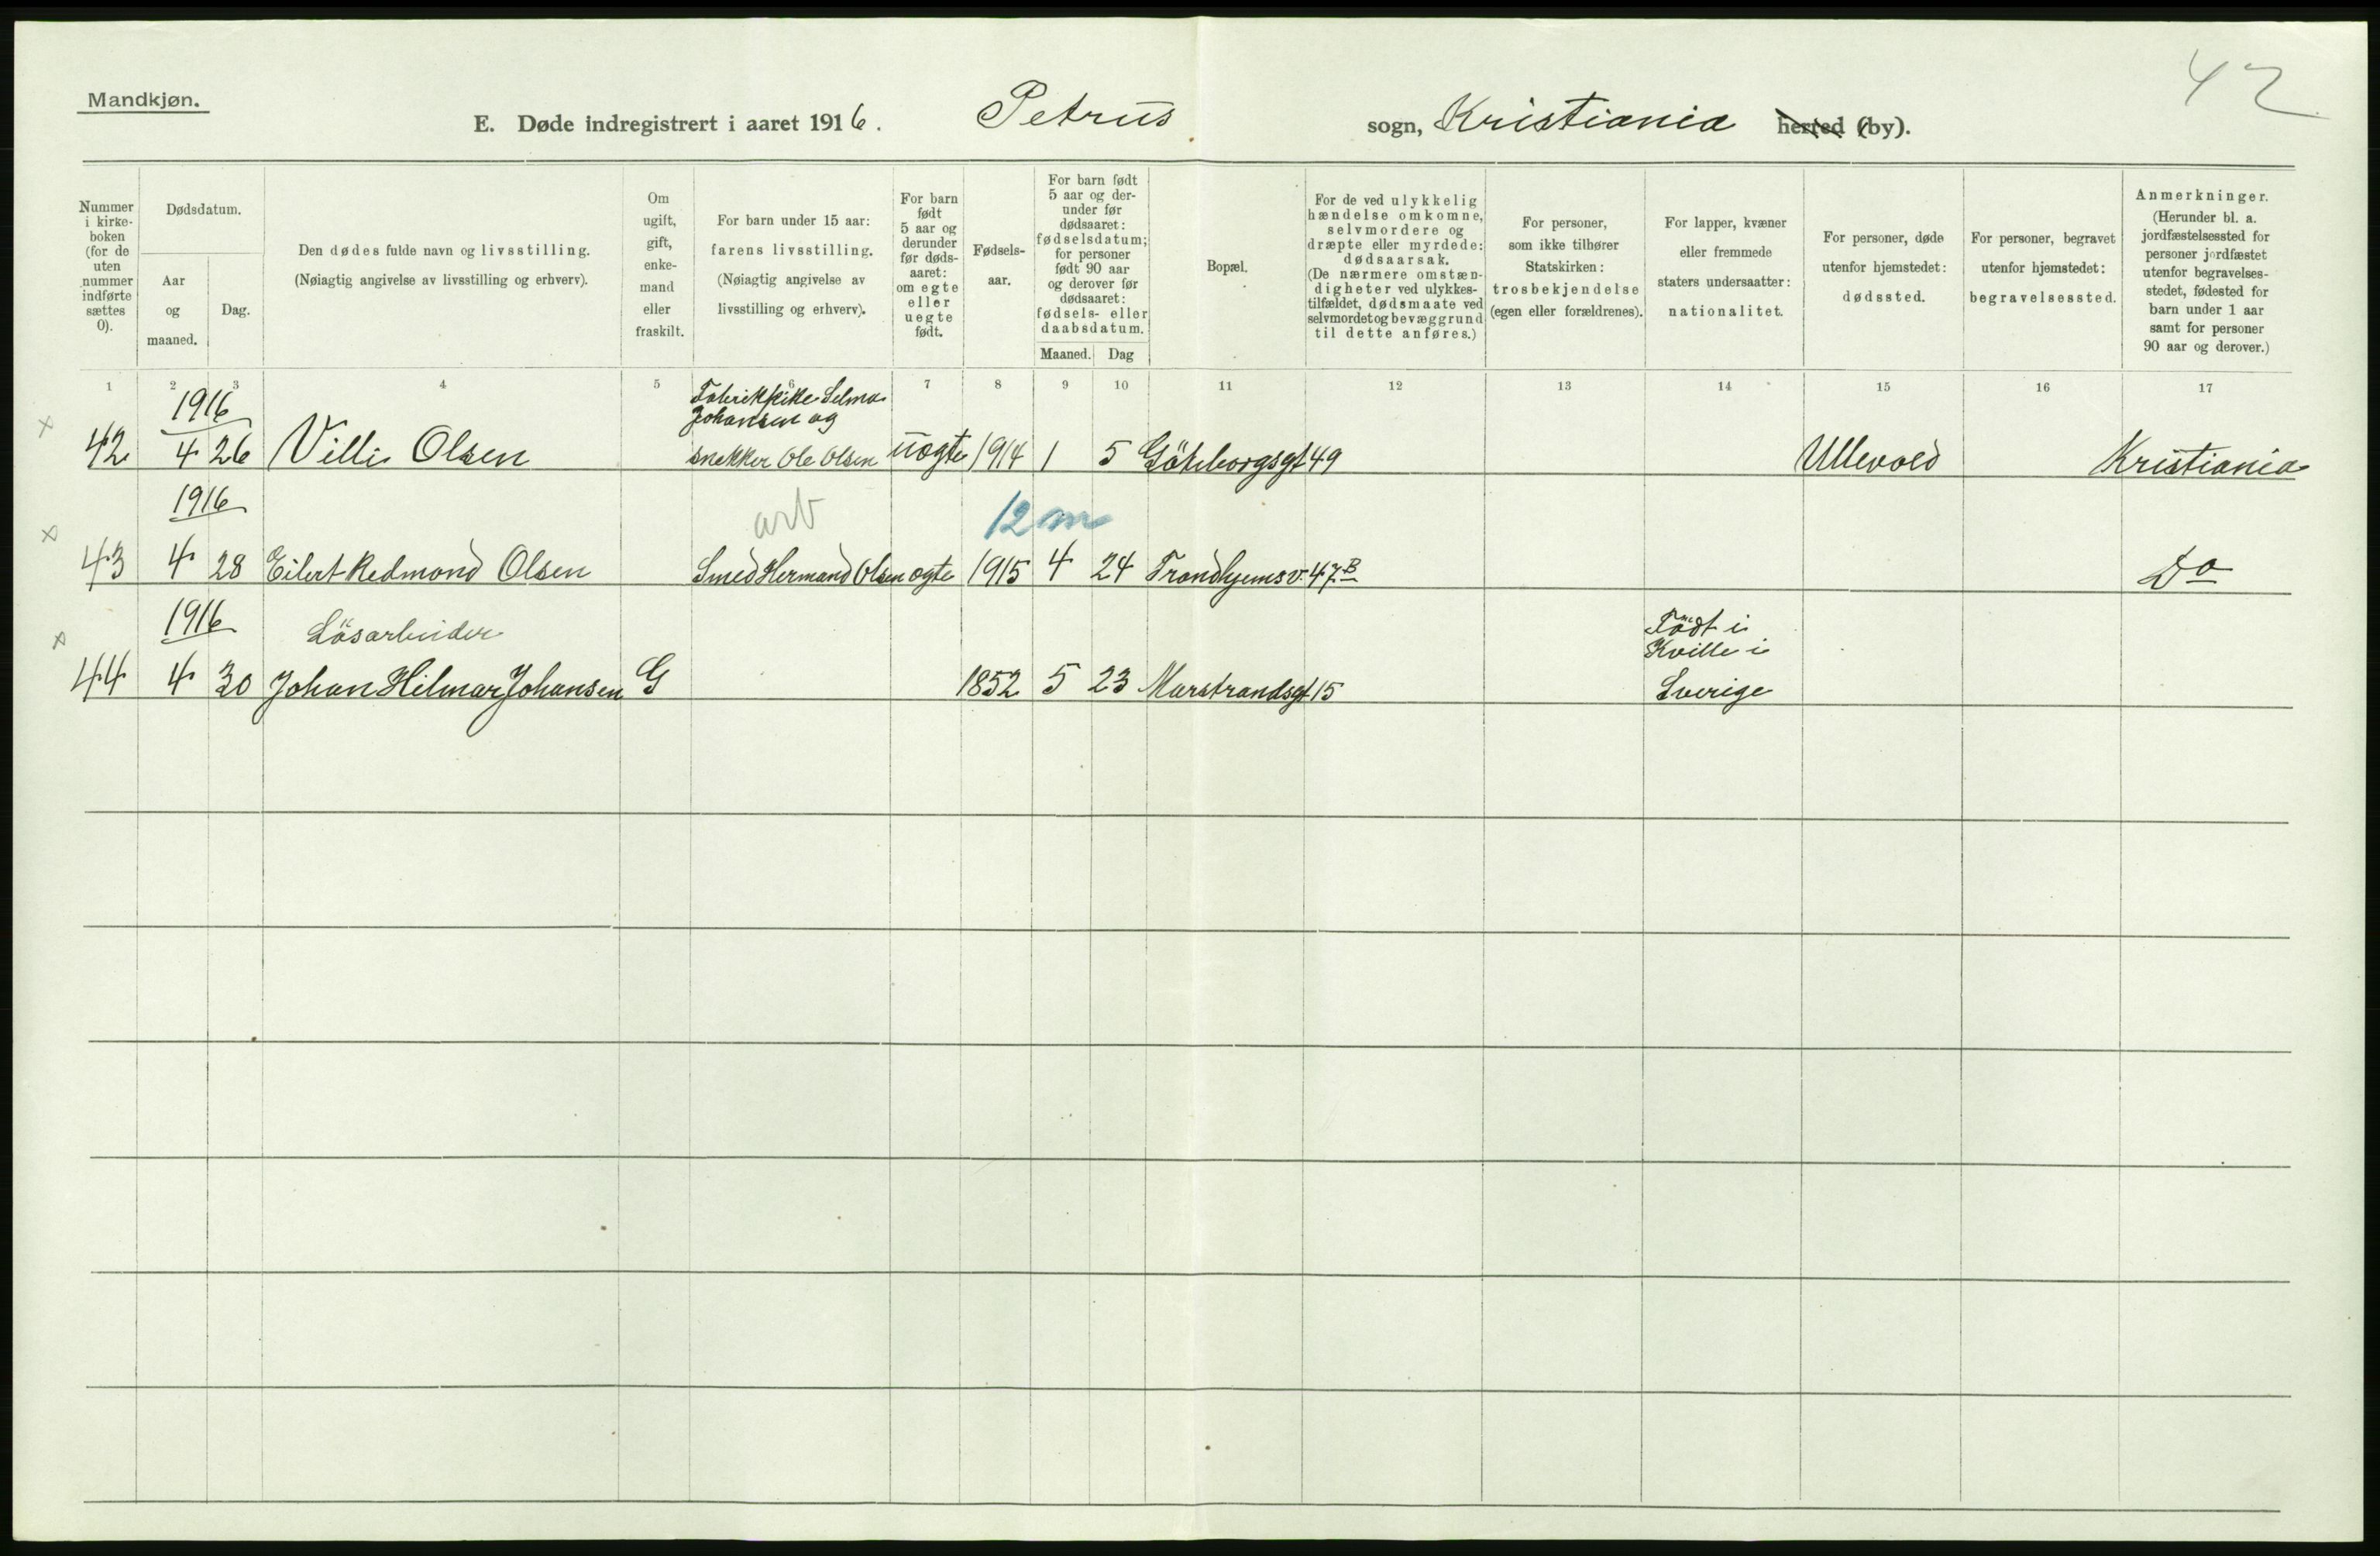 42
Mandkjøn.
E. Døde indregistrert i aaret 1916. Petrus sogn, Kristiania herred (by).
Nummer i kirke-boken (for de uten nummer indførte sættes 0).
Dødsdatum.
Aar og maaned.
Dag.
Den dødes fulde navn og livsstilling.
(Nøiagtig angivelse av livsstilling og erhverv).
Om ugift, gift, enke-mand eller fraskilt.
For barn under 15 aar: farens livsstilling.
(Nøiagtig angivelse av livsstilling og erhverv).
For barn født 5 aar og derunder før døds-aaret: om egte eller uegte født.
Fødsels-aar.
For barn født 5 aar og der-under før dødsaaret: fødselsdatum; for personer født 90 aar og derover før dødsaaret: fødsels- eller daabsdatum.
Maaned. Dag
Bopæl.
For de ved ulykkelig hændelse omkomne, selvmordere og dræpte eller myrdede: dødsaarsak.
(De nærmere omstæn-digheter ved ulykkes-tilfældet, dødsmaate ved selvmordet og bevæggrund til dette anføres.)
For personer, som ikke tilhører Statskirken: trosbekjendelse (egen eller forældrenes).
For lapper, kvæner eller fremmede staters undersaatter: nationalitet.
For personer, døde utenfor hjemstedet: dødssted.
For personer, begravet utenfor hjemstedet: begravelsessted.
Anmerkninger.
(Herunder bl. a. jordfæstelsessted for personer jordfæstet utenfor begravelses-stedet, fødested for barn under 1 aar samt for personer 90 aar og derover.)
1 2 3 4 5 6 7 8 9 10 11 12 13 14 15 16 17
1916 Fabrikkpike Selma
Johansen og
42 4 26 Villi Olsen snekker Ole Olsen uegte 1914 1 5 Göteborgsgt 49 Ullevold Kristiania
1916 arb 12 m
43 4 28 Eilert Redmond Olsen Smed Hermand Olsen egte 1915 4 24 Trondhjemsv. 47 B Do
1916 Lösarbeider Födt i
Kville i
44 4 30 Johan Hilmar Johansen G 1852 5 23 Marstrandsgt 15 Sverige